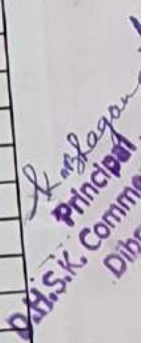 Principal
D.H.S.K. Comme
Dibr